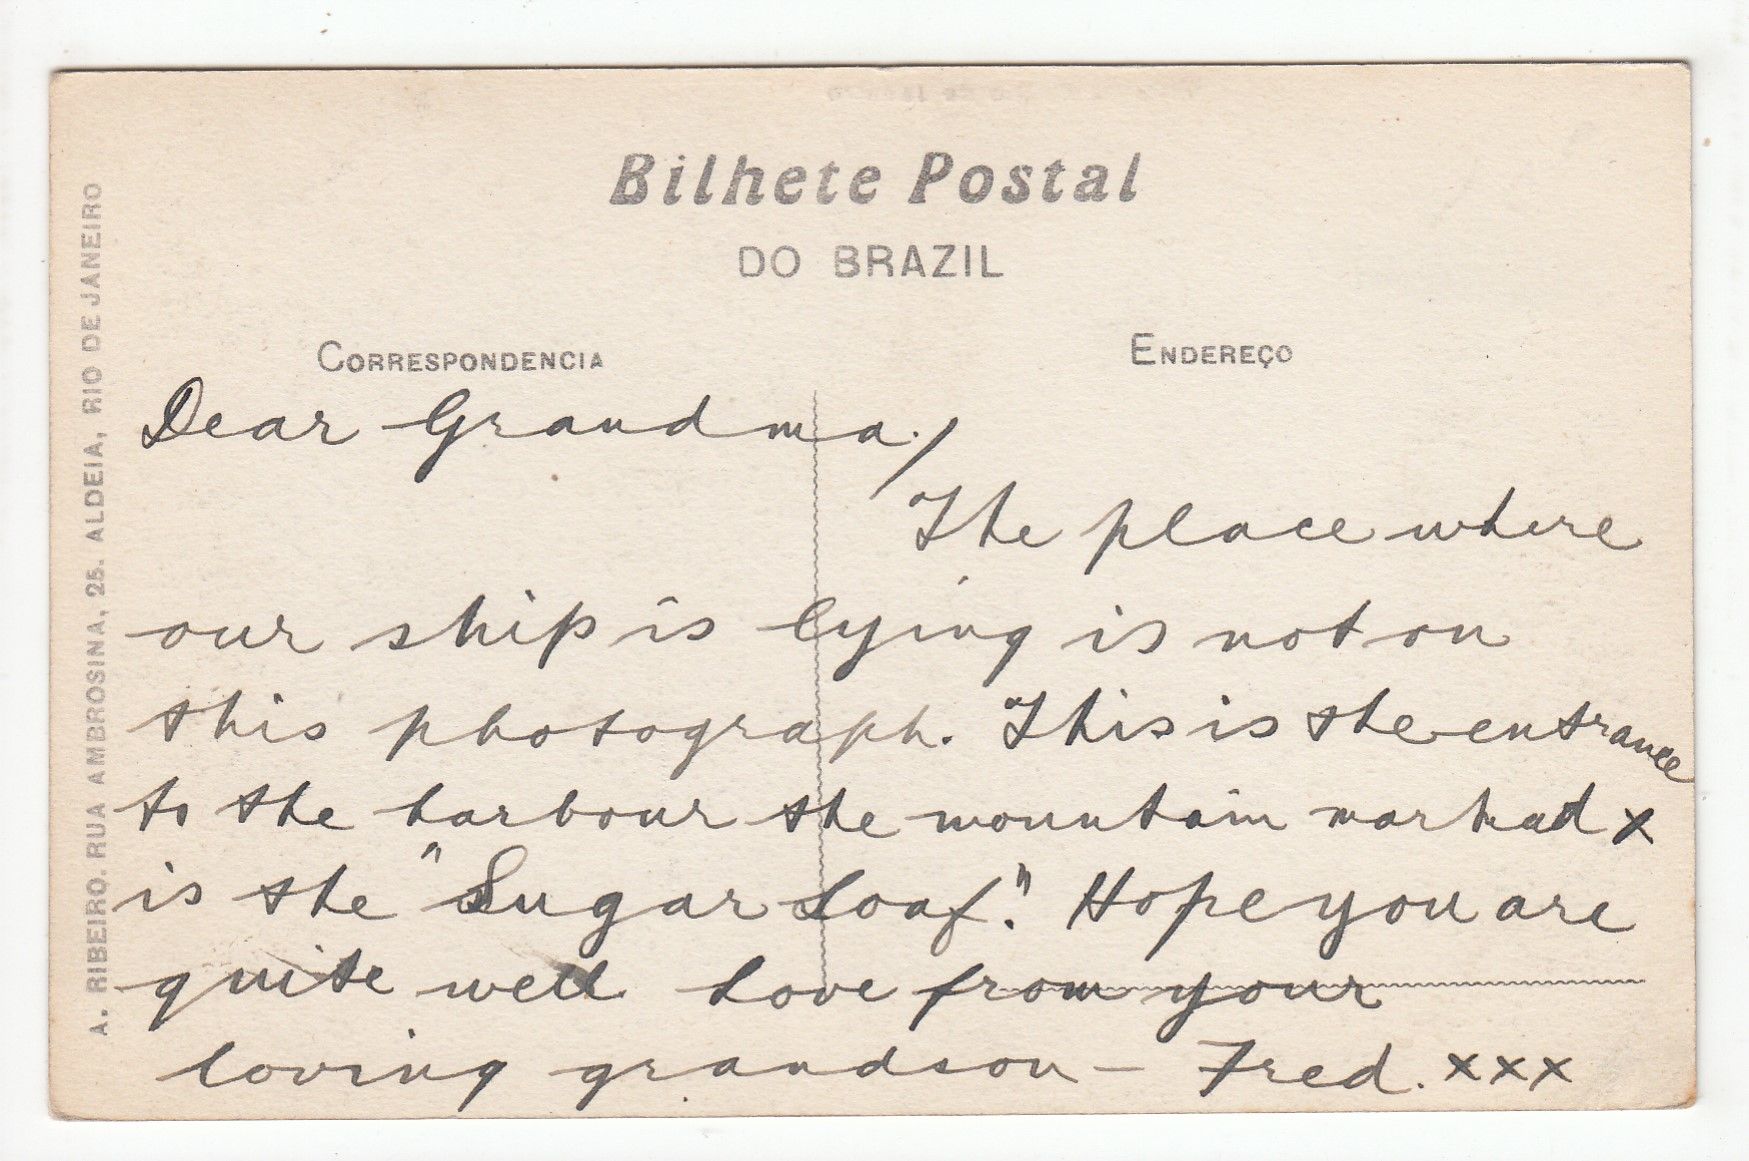 Bilhete Postal
DO BRAZIL
CORRESPONDENCIA
ENDEREÇO
A. RIBEIRO. RUA AMBROSINA, 25. ALDEIA, RIO DE JANEIRO
Dear Grandma,
The place where
our ship is lying is not on
this photograph. This is the entrance
to the harbour the mountain marked x
is the "Sugar Loaf". Hope you are
quite well Love from your
loving grandson - Fred. xxx